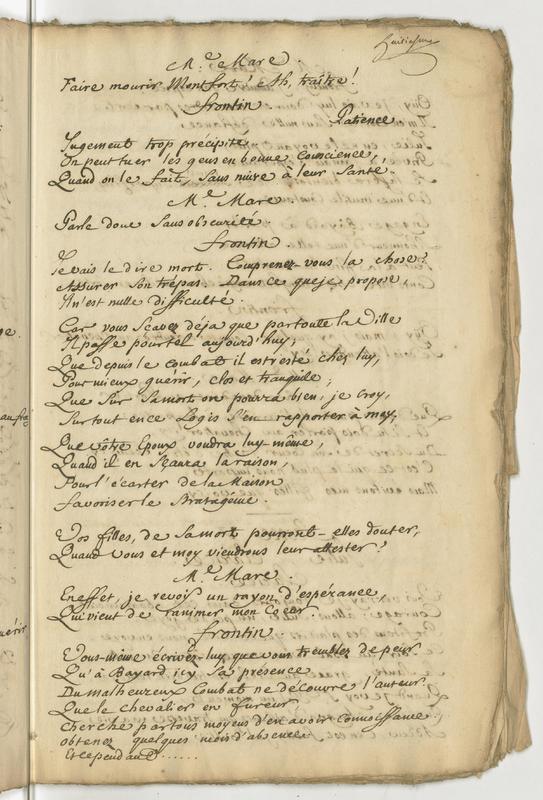 huitiesme
M.e Mare.
Faire mourir Montfort! Ah, traître!
frontin
Patience.
Jugement trop précipité
On peut tuer les gens en bonne Conscience,
Quand on le fait, Sans nuire à leur Santé.
M.e Mare.
Parle donc Sans obscurité.
frontin.
Je vais le dire mort. Comprenez-vous la chose?
Assurer Son trépas. Dans ce que je propose,
Il n'est nulle difficulté.
Car vous Scavez déja que par toute la Ville
Il passe pour tel aujourd'huy;
Que depuis le Combat il est resté chez luy,
Pour mieux guerir, clos et tranquile;
Que Sur Sa mort on pourra bien, je croy,
Surtout en ce Logis S'en rapporter à moy,
Que vôtre Epoux voudra luy-même,
Quand il en Scaura la raison,
Pour l'écarter de la Maison
favoriser le Stratagéme.
Vos filles, de Sa mort pourront-elles douter,
Quand vous et moy viendrons leur attester?
M.e Mare.
En effet, je revois un rayon d'espérance,
Qui vient de ranimer mon Coeur.
frontin.
Vous-même écrivez-luy que vous tremblez de peur
Qu'à Bayard icy Sa présence
Du malheureux Combat ne découvre l'auteur.
Que le Chevalier en fureur
Cherche par tous moyens d'en avoir Connoissance.
Obtenez quelques mois d'absence
Et cependant......